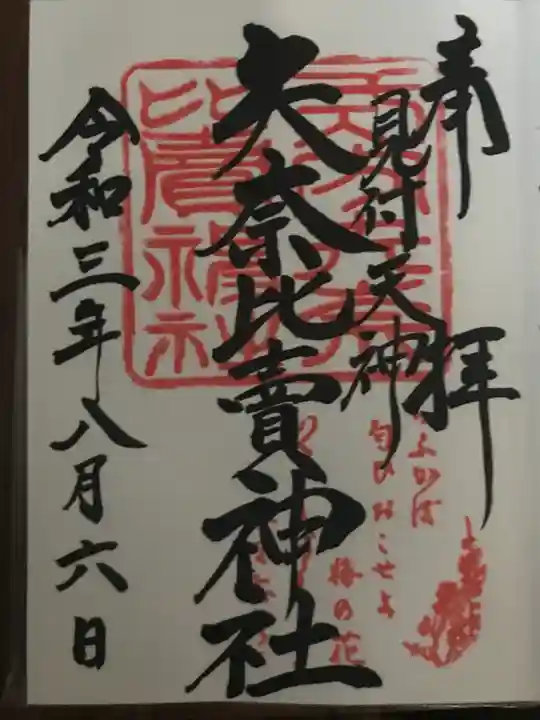 奉拝
見付天神
矢奈比賣神社
令和三年八月六日
匂ひおこせよ
梅の花